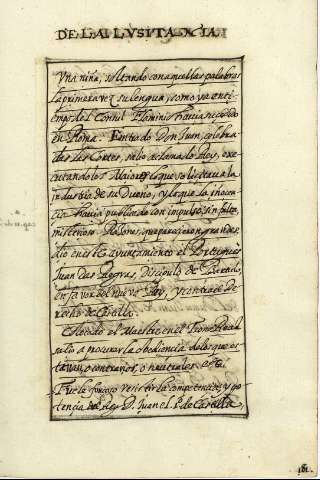 DE LA LVSITANIA.
Vna niña, soltando con aquellas palabras
la primera vez su lengua, como ya en ti
empo del Consul Flaminio hauia sucedido
en Roma. Entrado Don Juan, celebra
das las Cortes, salio aclamado Rey, exe
cutando los Maiores lo que solicitaua la
industria de su Dueño, y lo que la inocen
cia hauia publicado con impulso, sin falta,
misterioso.
dio en este ayuntamiento el Portugues
Juan das Regras, Discipulo de Bartolo,
en fauor del nueuo Rey, y contra el de
recho de Castilla.
el Maestre en el Trono Real
salio a procurar la obediencia de los que es
tauan, o contrarios, o neutrales.
Fue le forçoso resistir la competencia, y po
tencia del Rey D. Juan el 1.º de Castilla,
161.